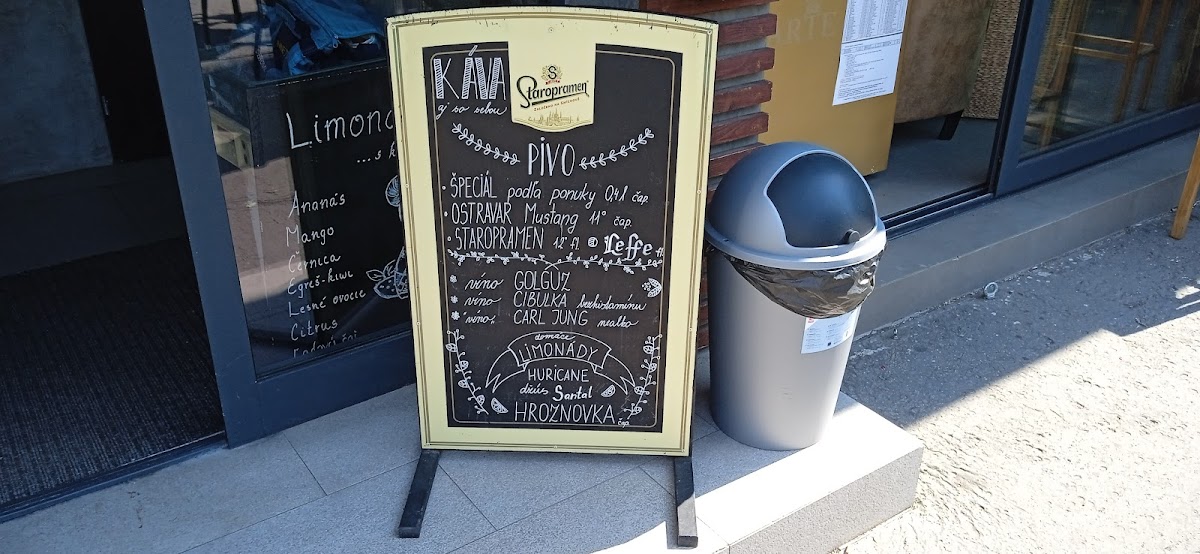 KÁVA
aj so sebou
Staropramen
PIVO
ŠPECIÁL podľa ponuky 0,4l čap.
OSTRAVAR Mustang 11° čap.
STAROPRAMEN 12° fl. Leffe fl.
víno GOLGUZ
víno CIBULKA bezhistamínu
víno CARL JUNG nealko
domáce
LIMONÁDY
HURICANE
džús Santal
HROZNOVKA čap.
Limoná
...s k
Ananás
Mango
Černica
Egreš-kiwi
Lesné ovocie
Citrus
ARTE